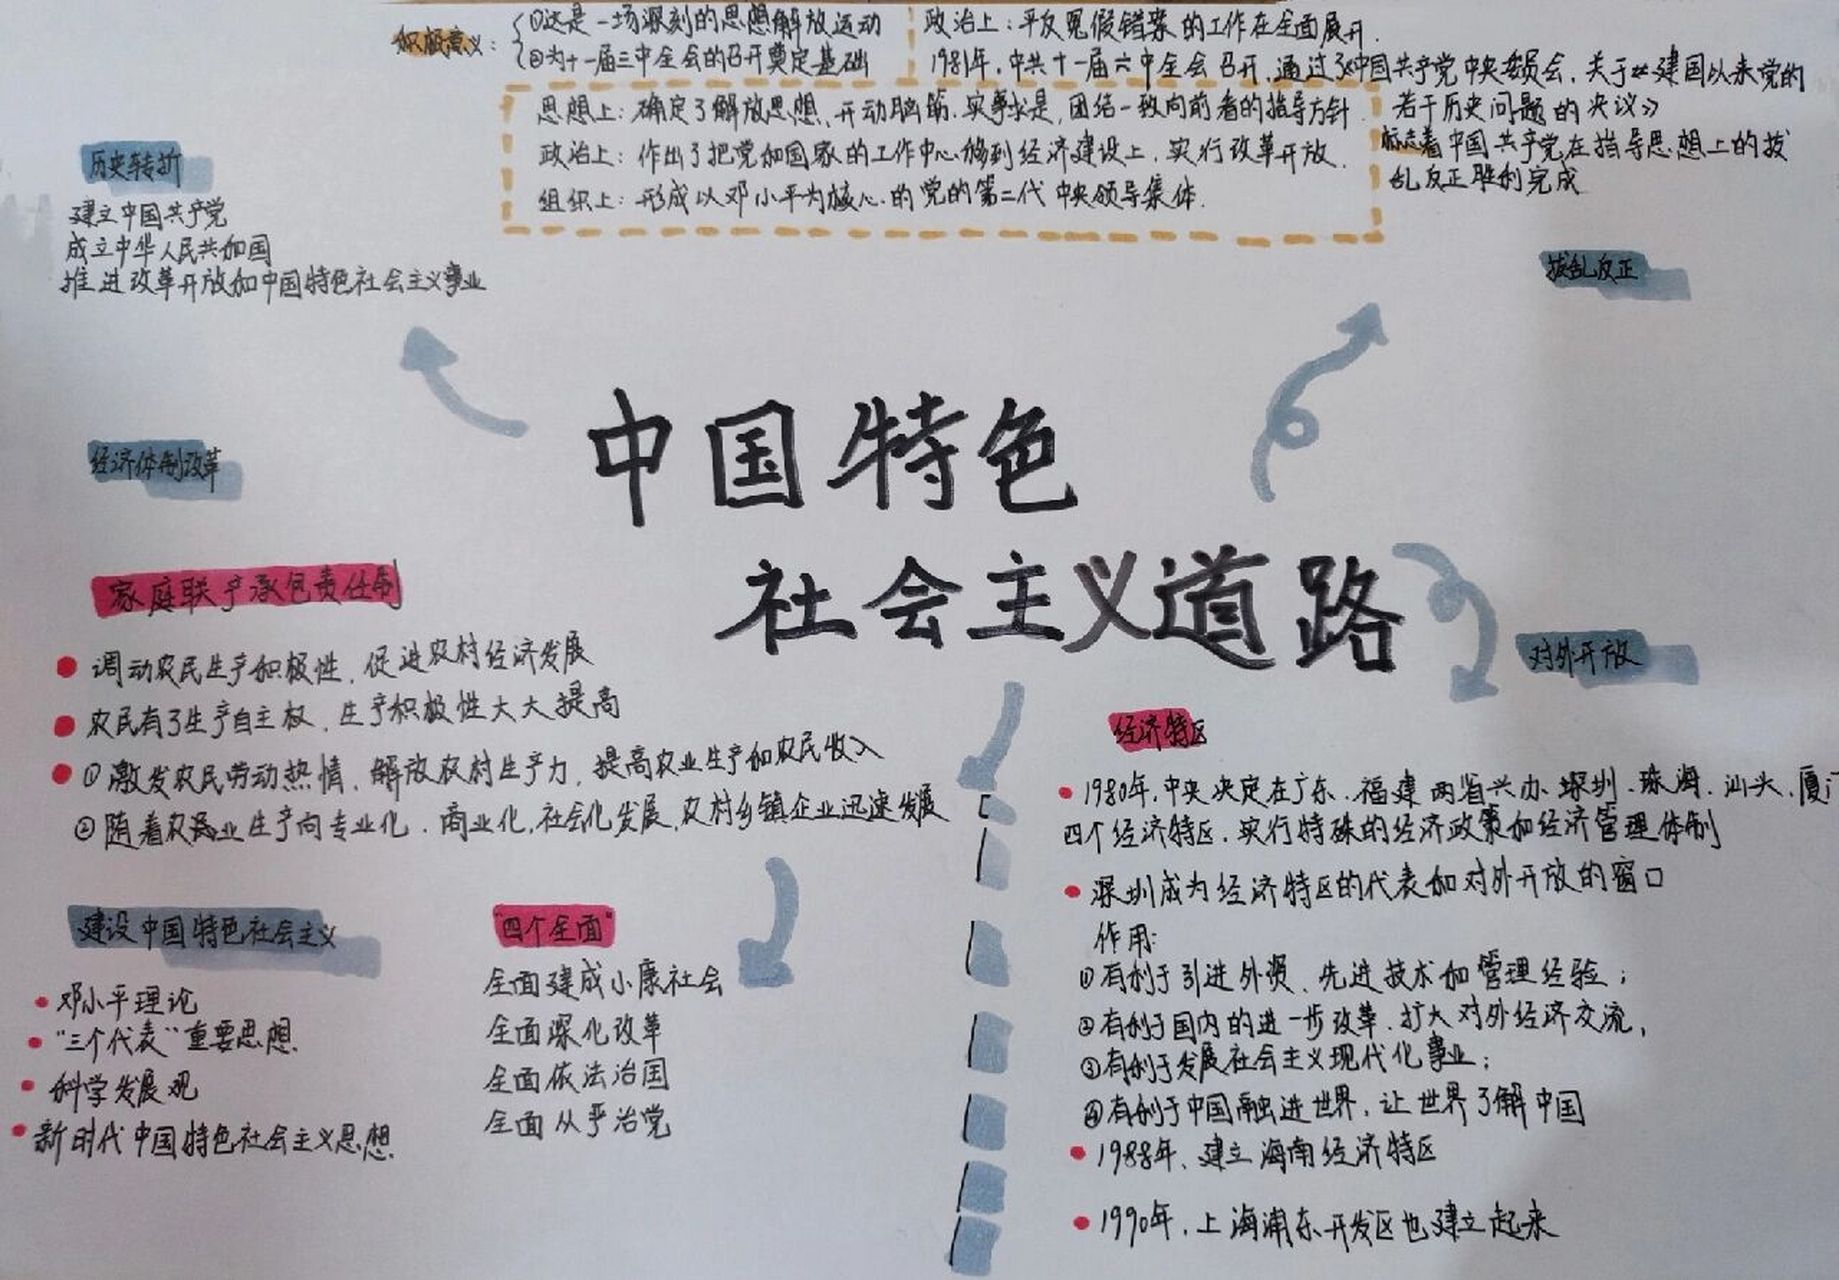 积极意义：
①这是一场深刻的思想解放运动
②为十一届三中全会的召开奠定基础
政治上：平反冤假错案的工作在全面展开.
1981年，中共十一届六中全会召开，通过了《中国共产党中央委员会，关于建国以来党的
若干历史问题的决议》
标志着中国共产党在指导思想上的拨
乱反正胜利完成
思想上：确定了解放思想、开动脑筋、实事求是，团结一致向前看的指导方针
政治上：作出了把党和国家的工作中心移到经济建设上，实行改革开放.
组织上：形成以邓小平为核心的党的第二代中央领导集体.
历史转折
建立中国共产党
成立中华人民共和国
推进改革开放和中国特色社会主义事业
拨乱反正
中国特色
社会主义道路
经济体制改革
家庭联产承包责任制
调动农民生产积极性，促进农村经济发展
农民有了生产自主权，生产积极性大大提高
①激发农民劳动热情，解放农村生产力，提高农业生产和农民收入
②随着农业生产向专业化、商业化，社会化发展，农村乡镇企业迅速发展
建设中国特色社会主义
邓小平理论
“三个代表”重要思想.
科学发展观
新时代中国特色社会主义思想
“四个全面”
全面建成小康社会
全面深化改革
全面依法治国
全面从严治党
对外开放
经济特区
1980年，中央决定在广东、福建两省兴办深圳、珠海、汕头、厦门
四个经济特区，实行特殊的经济政策和经济管理体制
深圳成为经济特区的代表和对外开放的窗口
作用：
①有利于引进外资、先进技术和管理经验；
②有利于国内的进一步改革、扩大对外经济交流，
③有利于发展社会主义现代化事业；
④有利于中国融进世界，让世界了解中国
1988年，建立海南经济特区
1990年，上海浦东开发区也建立起来